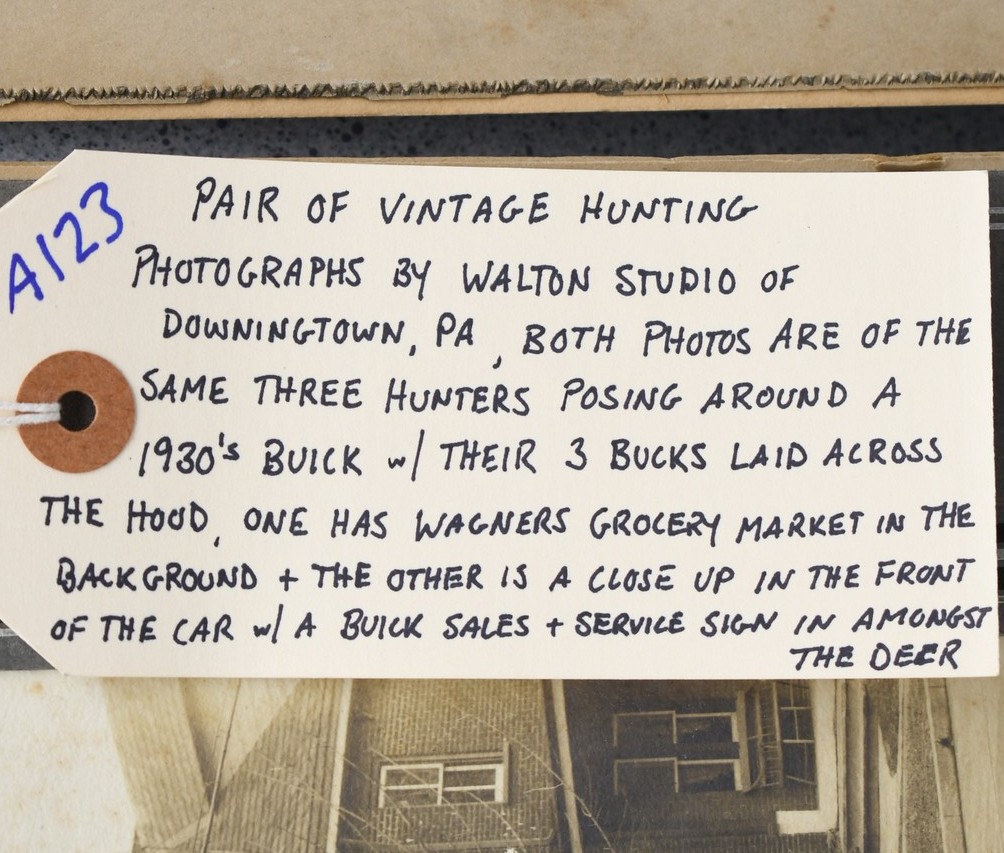 A123
PAIR OF VINTAGE HUNTING
PHOTOGRAPHS BY WALTON STUDIO OF
DOWNINGTOWN, PA, BOTH PHOTOS ARE OF THE
SAME THREE HUNTERS POSING AROUND A
1930's BUICK w/ THEIR 3 BUCKS LAID ACROSS
THE HOOD, ONE HAS WAGNERS GROCERY MARKET IN THE
BACKGROUND + THE OTHER IS A CLOSE UP IN THE FRONT
OF THE CAR w/ A BUICK SALES + SERVICE SIGN IN AMONGST
THE DEER